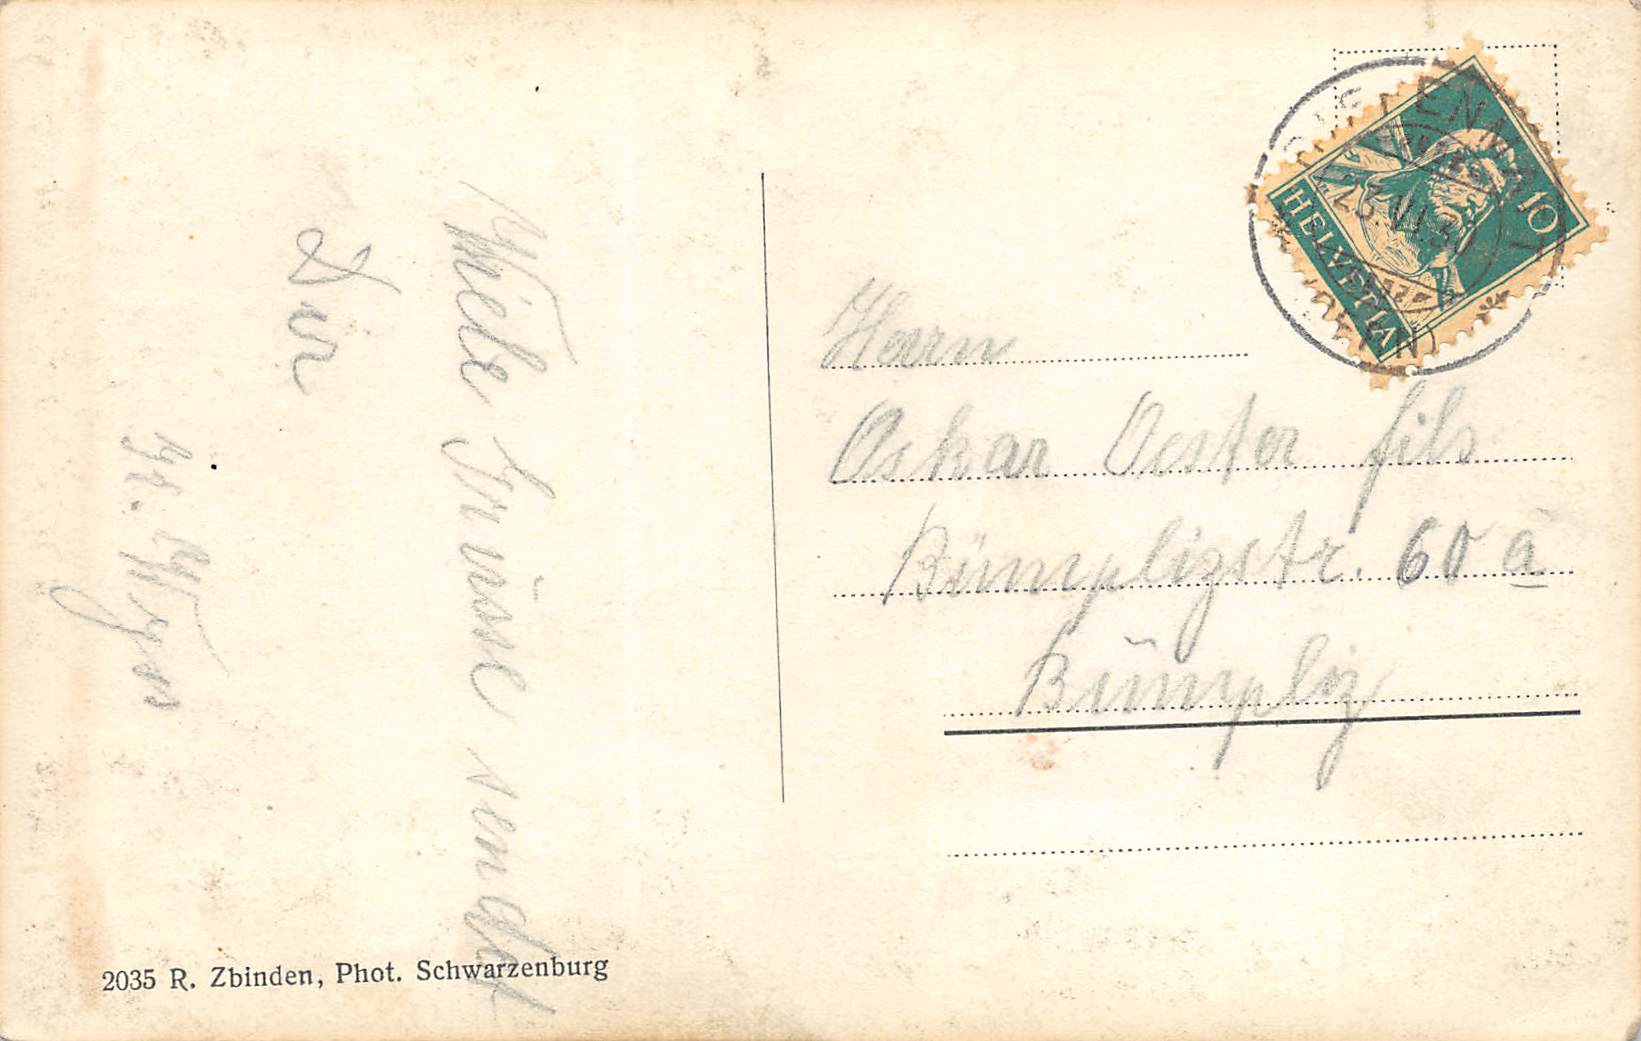 Viele Grüsse sendet
Dir
Herrn
Oskar Oester fils
Bümplizstr. 60 a
Bümpliz
HELVETIA
10
23. VI. 3
2035 R. Zbinden, Phot. Schwarzenburg